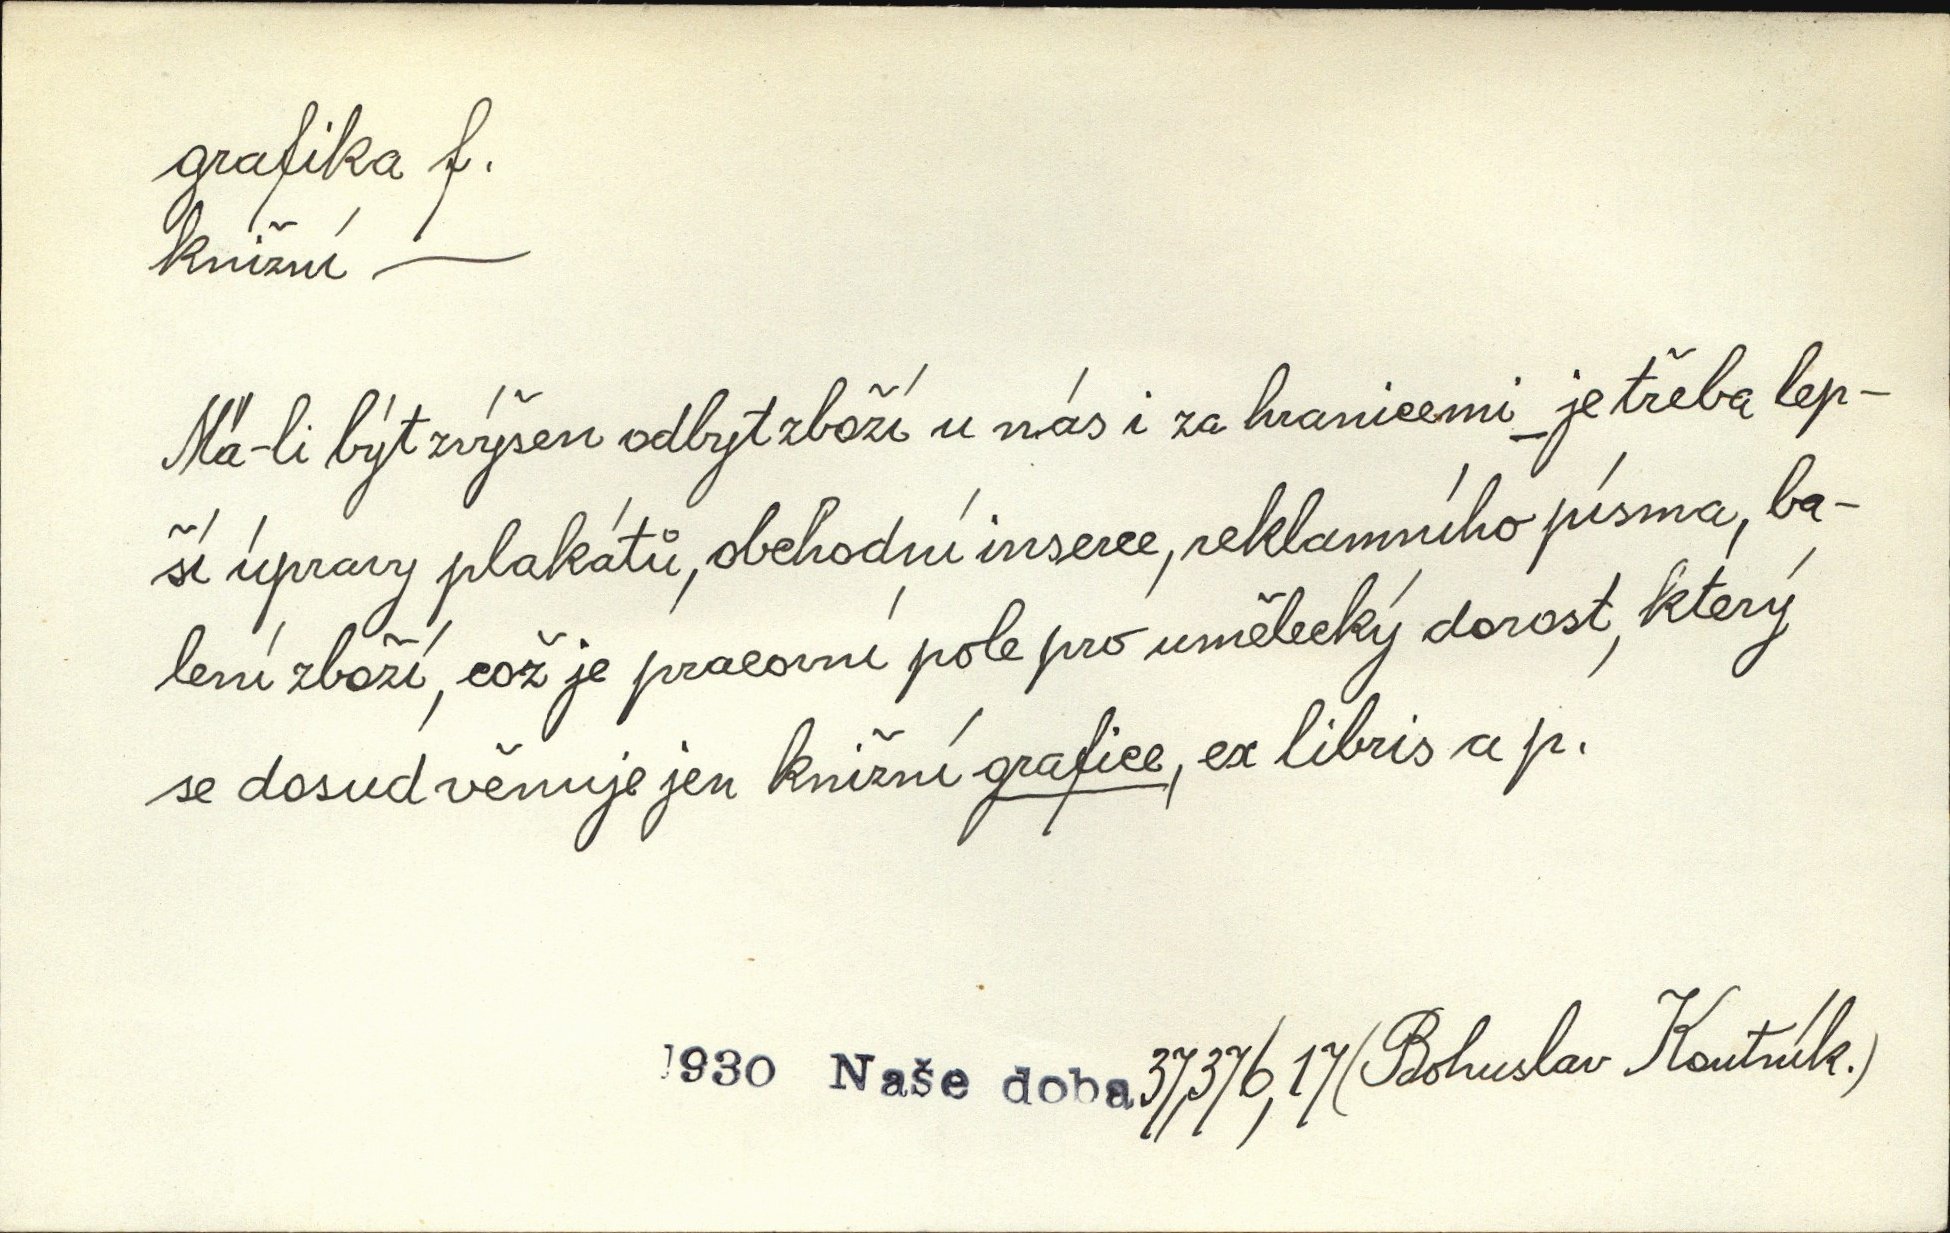 grafika f.
knižní —
Má-li být zvýšen odbyt zboží u nás i za hranicemi_je třeba lep-
ší úpravy plakátů, obchodní inserce, reklamního písma, ba-
lení zboží, což je pracovní pole pro umělecký dorost, který
se dosud věnuje jen knižní grafice, ex libris a p.
1930 Naše doba 37,376,17 (Bohuslav Koutník.)